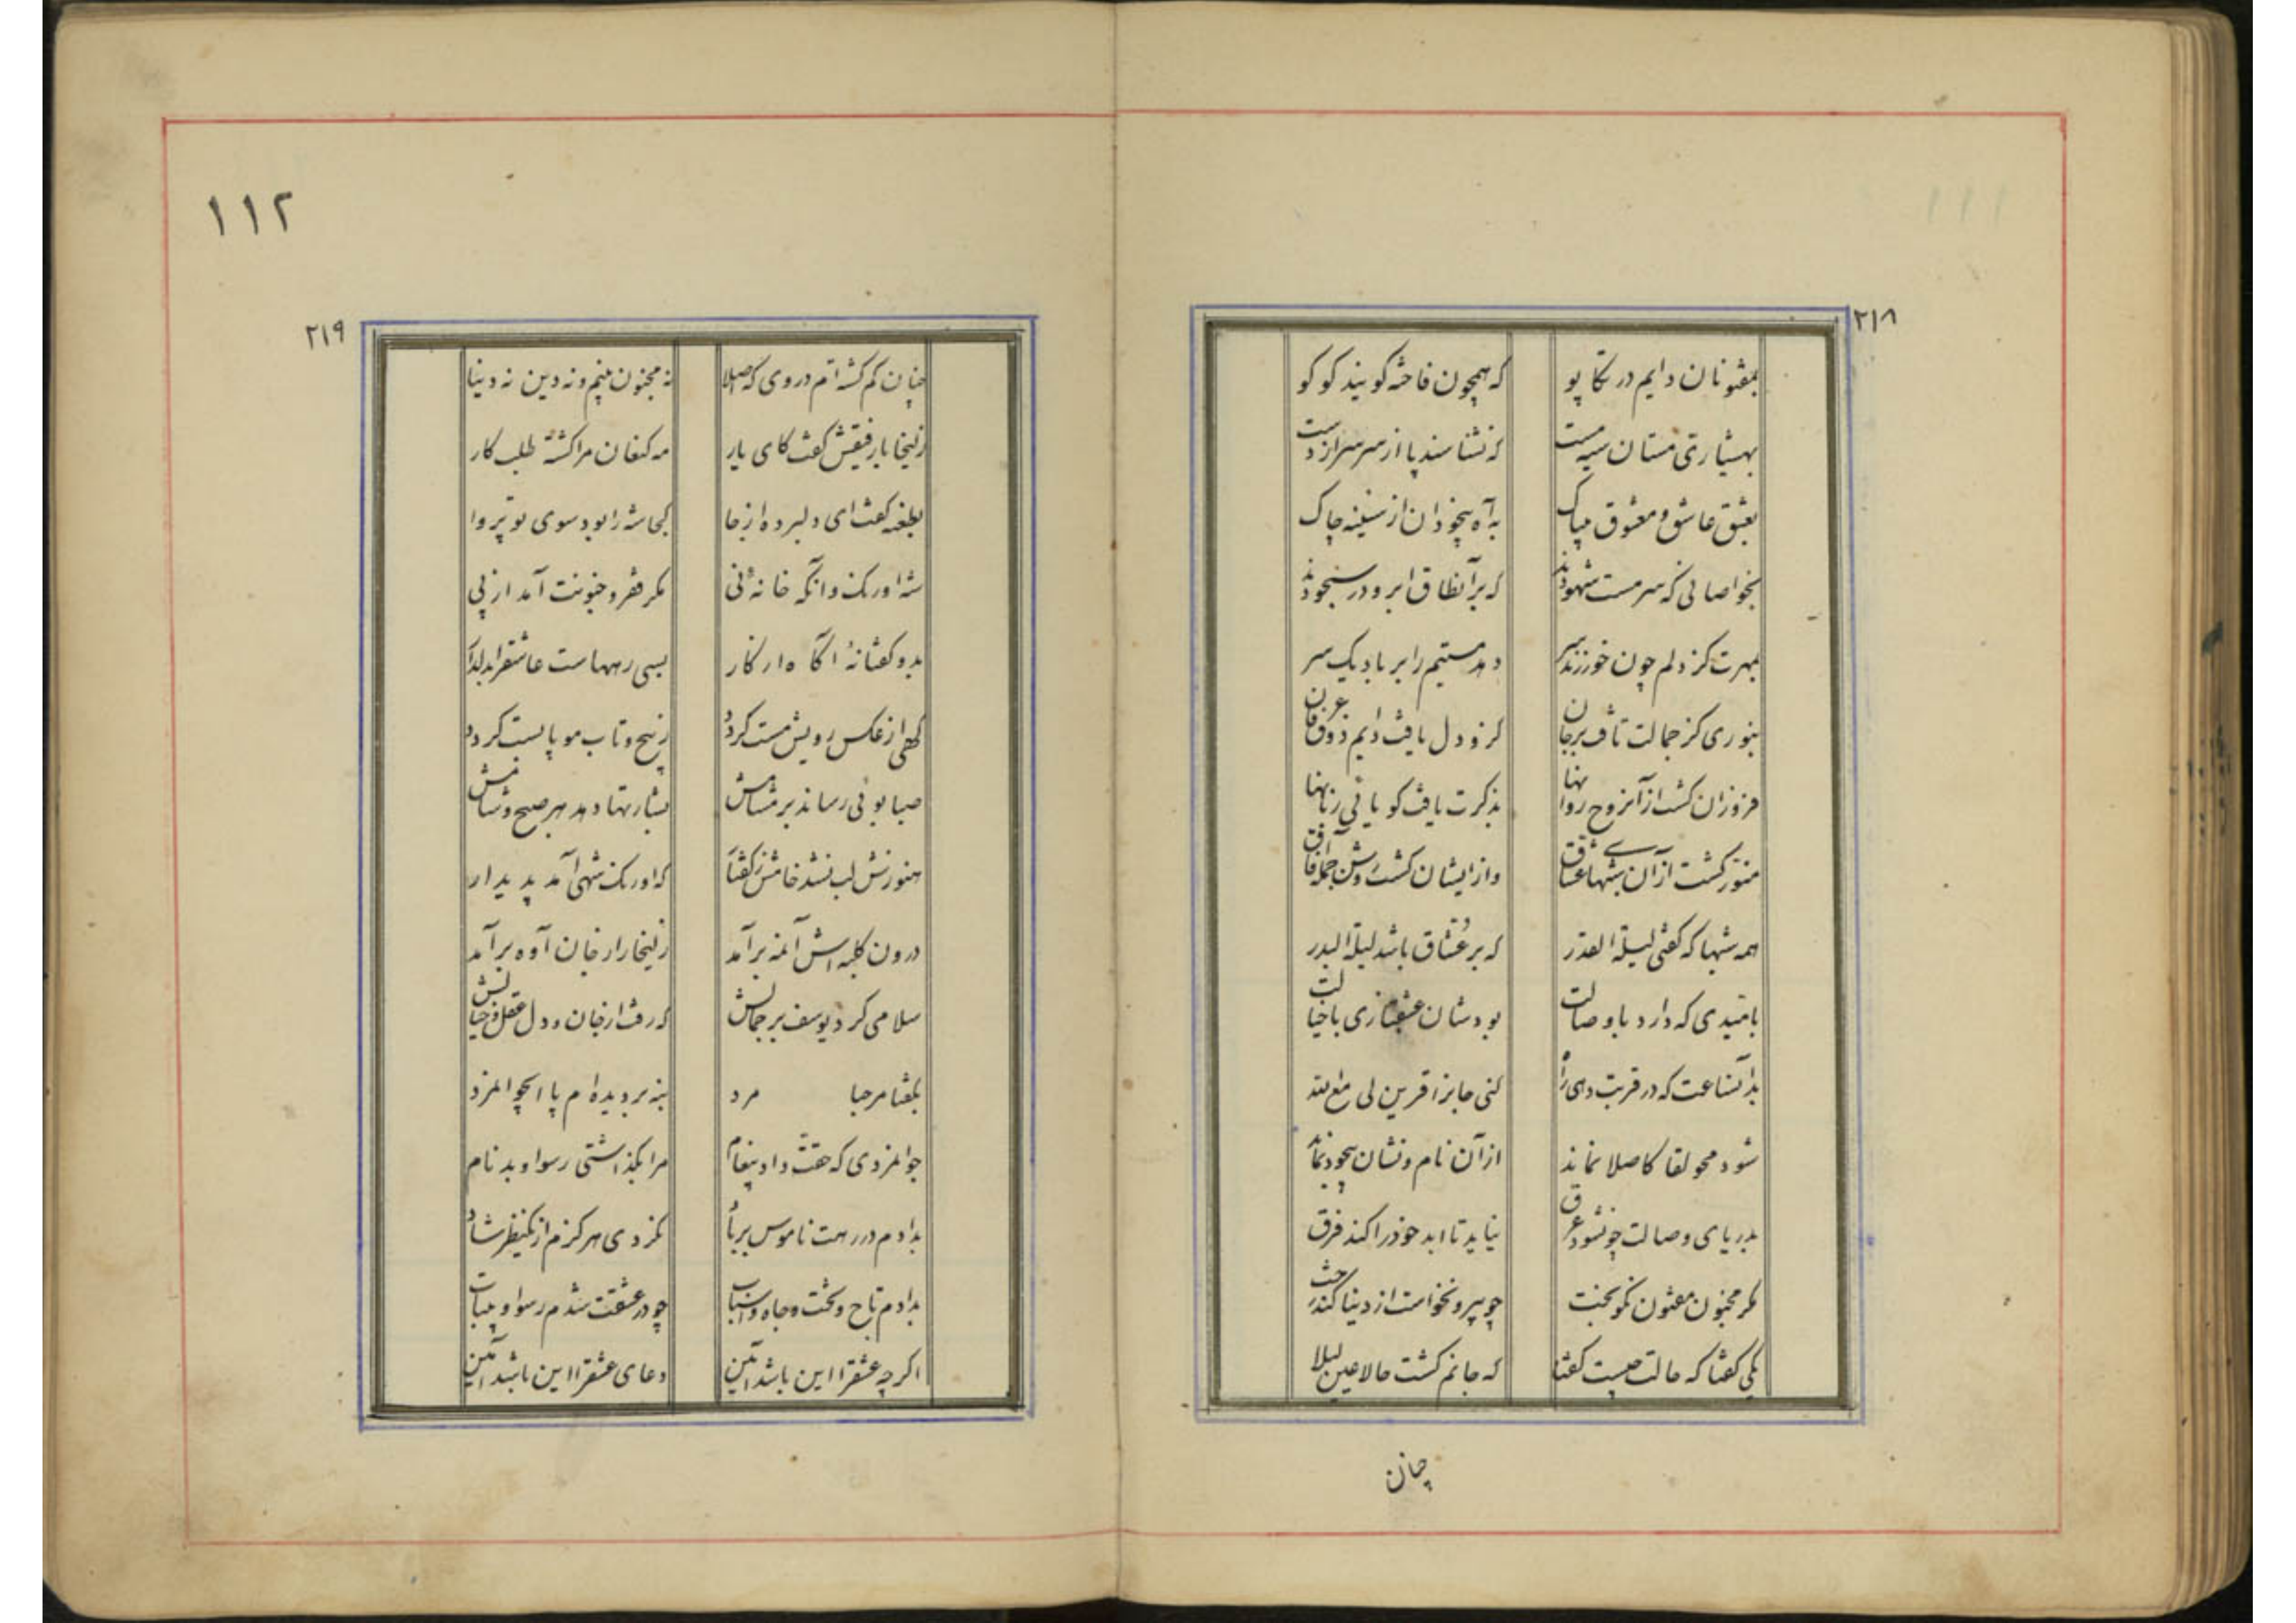 ۲۱۸
بمفتونان دایم در تکاپو که همچون فاخته کویند کو کو
بهشیاری مستان سیه مست که نشناسند پا از سر سر از دست
بعشق عاشق و معشوق بیباک به آه بیخودان از سینه چاک
بخواصانی که سرمست شهودند که بر آنطاق ابرو در سجودند
بمهرت کز دلم چون خور زند سر دهد هستیم را بر باد یک سر
بنوری کز جمالت تافت بر جان کزو دل یافت دایم ذوق عرفان
فروزان کشت از آنروح روانها بذکرت یافت کویائی زبانها
منور کشت از آن شبهای عشاق وز ایشان کشت روشن جمله آفاق
همه شبها که کفتی لیلة القدر که بر عشاق باشد لیلة البدر
بامیدی که دارد با وصالت بودشان عشقبازی با خیالت
بدانساعت که در قربت دهی راه کنی جایز اقرین لی مع الله
شود محو لقا کاصلا نماند از آن نام و نشان بیخود نماند
بدریای وصالت چونشود غرق نیاید تا ابد خود را کند فرق
مکر مجنون مفتون نکوبخت چو بیرون خواست از دنیا کند رخت
یکی کفتا که حالت چیست کفتا که جانم کشت حالا عین لیلا
چنان
۱۱۲
۲۱۹
چنان کم کشته‌ام در وی که اصلا نه مجنون بینم و نه دین نه دنیا
زلیخا با رفیقش کفت کای یار مه کنعان مرا کشته طلب کار
بطعنه کفت ای دلبرده از جا کجا شه را بود سوی تو پروا
شه اورنک وانکه خانه نی مکر فقر و جنونت آمد از پی
بدو کفتا نه اکاه از کار بسی رههاست عاشقرا بدلدار
کهی از عکس رویش مست کردد ز پیچ و تاب مو پابست کردد
صبا بوئی رساند بر مشامش بشارتها دهد هر صبح و شامش
هنوزش لب نشد خامش ز کفتار که اورنک شهی آمد پدیدار
درون کلبه‌اش آنمه برآمد زلیخا را ز جان آوه برآمد
سلامی کرد یوسف بر جمالش که رفت از جان و دل عقل و خیالش
بکفتا مرحبا مرد بنه بر دیده‌ام پا ایجوانمرد
جوانمردی که حقت داد پیغام مرا بکذاشتی رسوا و بدنام
بدادم در رهت ناموس بر باد نکردی هرکزم از یکنظر شاد
بدادم تاج و تخت و جاه و اسباب چو در عشقت شدم رسوا و بیتاب
اکرچه عشقرا این باشد آئین دعای عشقرا این باشد آمین